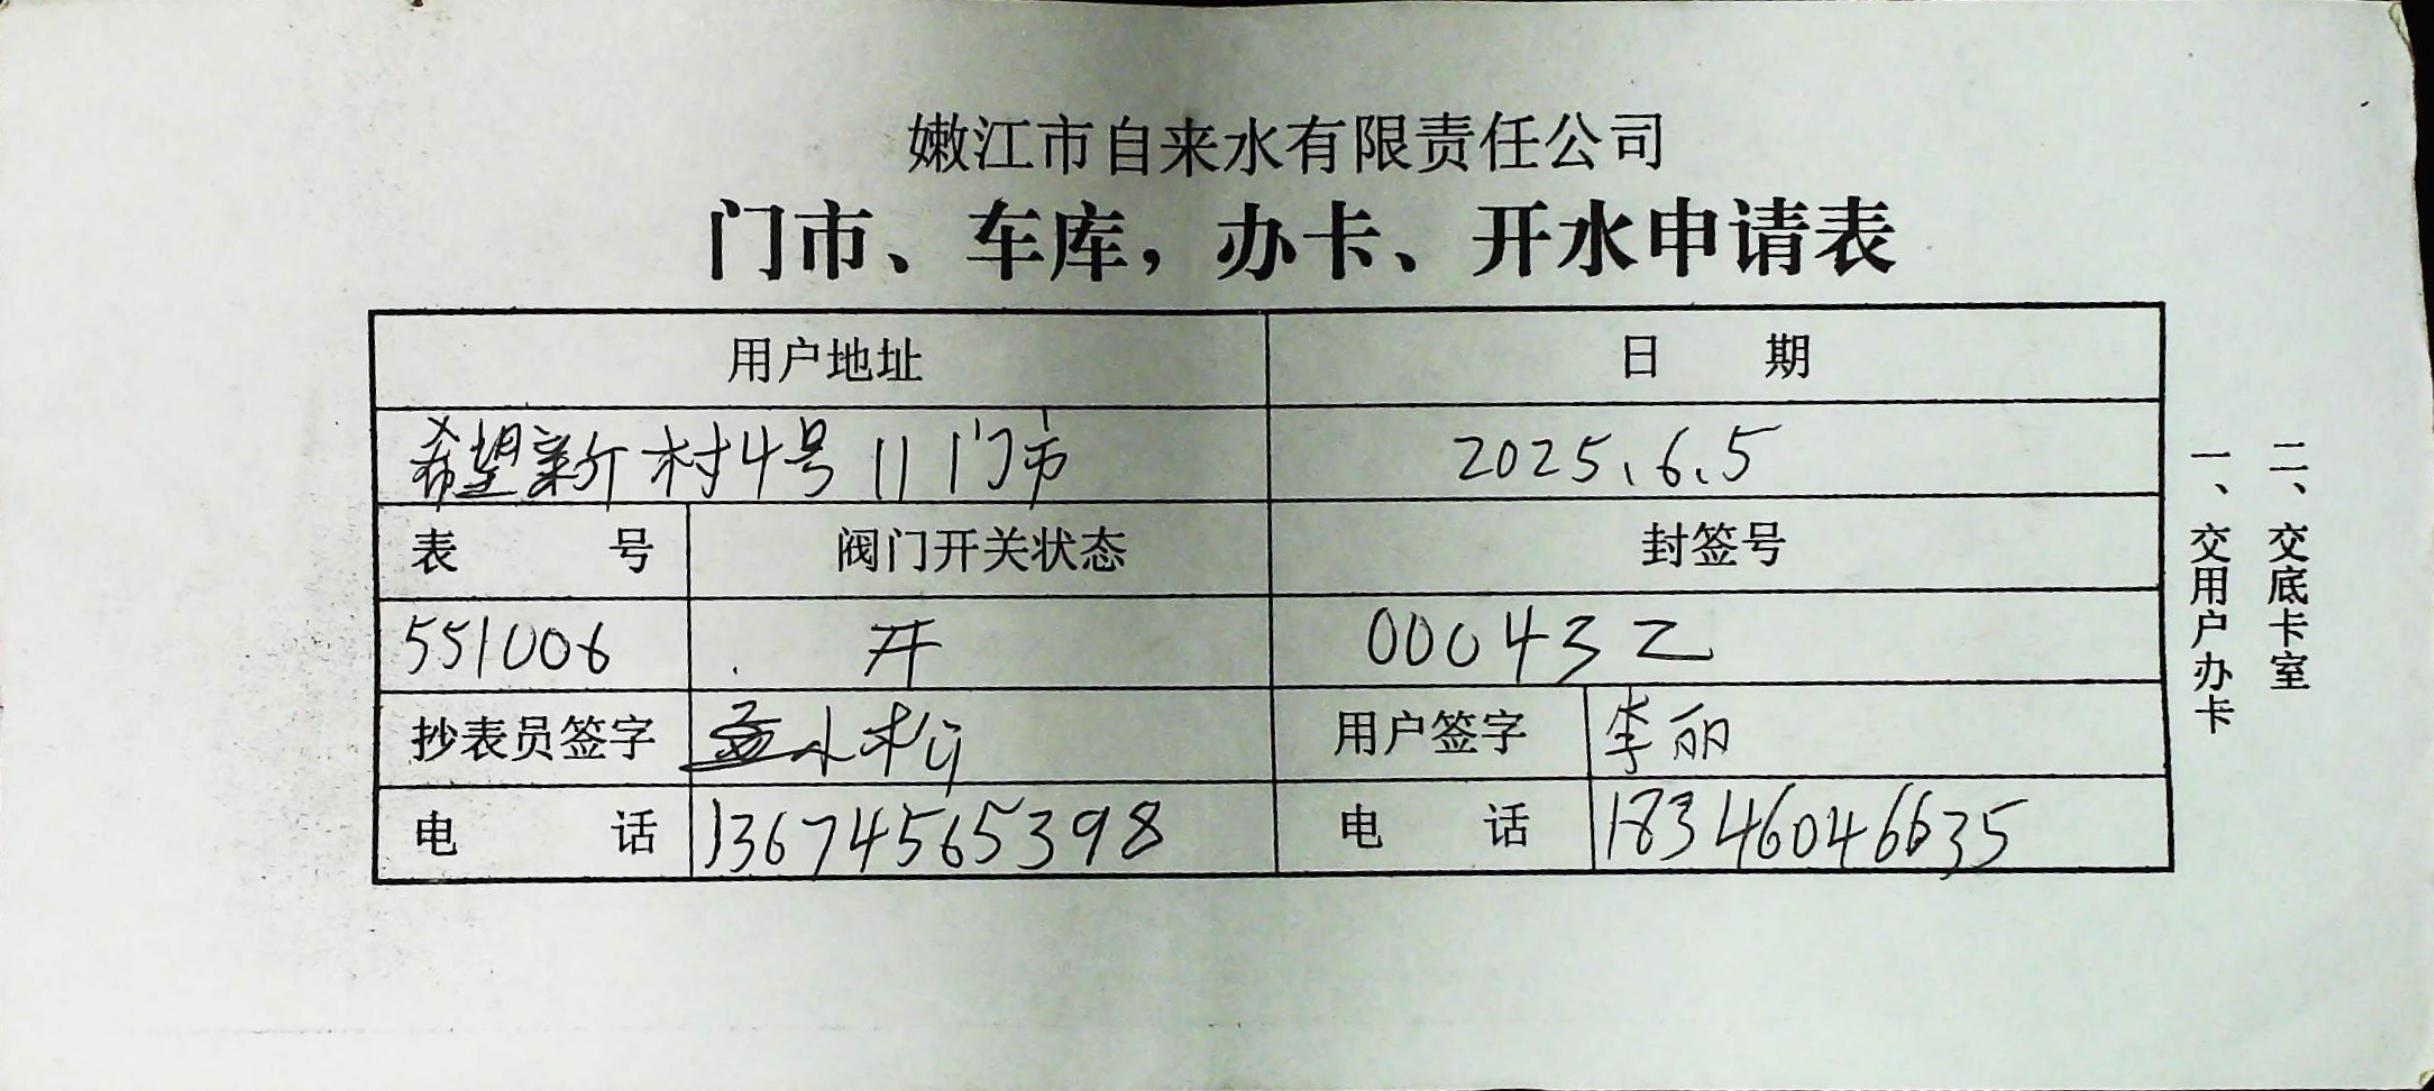 嫩江市自来水有限责任公司
门市、车库，办卡、开水申请表
用户地址 日 期
希望新村4号11门市 2025.6.5
表 号 阀门开关状态 封签号
551006 开 000432
抄表员签字 用户签字 李丽
电 话 13674565398 电 话 18346046635
一、交用户办卡
二、交底卡室